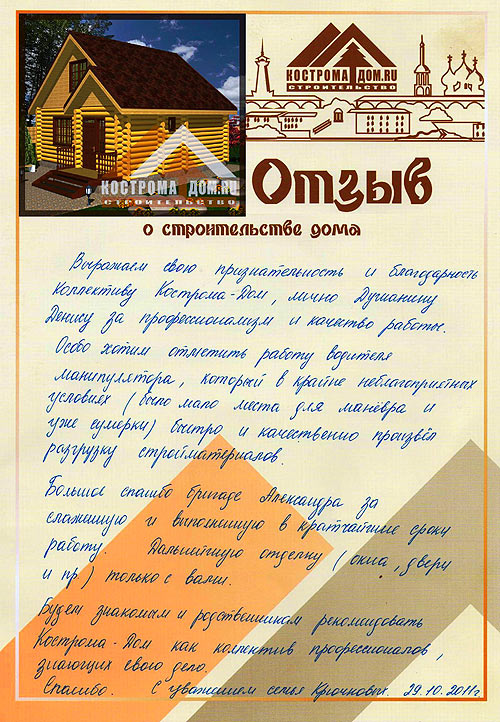 КОСТРОМА ДОМ.RU
СТРОИТЕЛЬСТВО
КОСТРОМА ДОМ.RU
СТРОИТЕЛЬСТВО
Отзыв
о строительстве дома
Выражаем свою признательность и благодарность
коллективу Кострома-Дом, лично Душанину
Денису за профессионализм и качество работы.
Особо хотим отметить работу водителя
манипулятора, который в крайне неблагоприятных
условиях (было мало места для манёвра и
уже сумерки) быстро и качественно произвёл
разгрузку стройматериалов.
Большое спасибо бригаде Александра за
слаженную и выполненную в кратчайшие сроки
работу. Дальнейшую отделку (окна, двери
и пр) только с вами.
Будем знакомым и родственникам рекомендовать
Кострома-Дом как коллектив профессионалов,
знающих своё дело.
Спасибо. С уважением семья Крючковых. 29.10.2011г